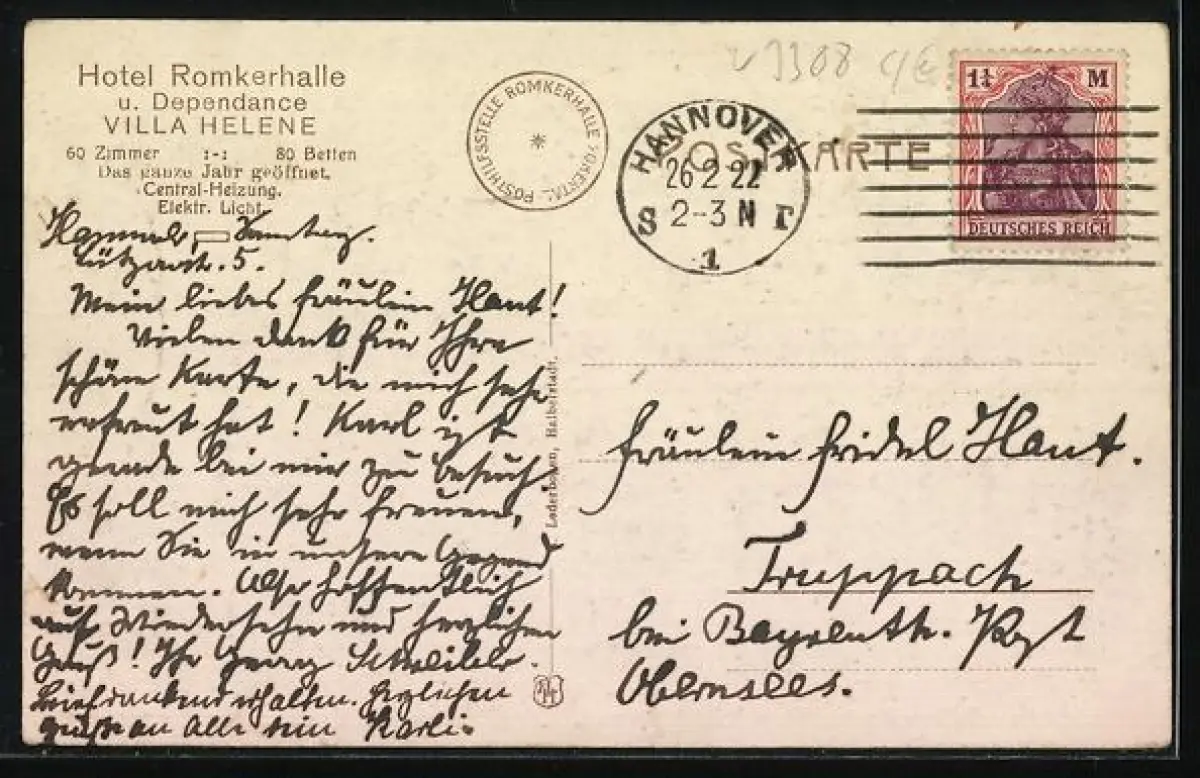 Hotel Romkerhalle
u. Dependance
VILLA HELENE
60 Zimmer :-: 80 Betten
Das ganze Jahr geöffnet.
Central-Heizung.
Elektr. Licht.
POSTHILFSSTELLE ROMKERHALLE (OKERTAL)
HANNOVER
26.2.22
2-3 N
S 1
POSTKARTE
1¼ M
DEUTSCHES REICH
Samstag.
5.
Mein liebes Fräulein Hant!
Vielen Dank für Ihre
schöne Karte, die mich sehr
erfreut hat! Karl ist
gerade bei mir zu Besuch.
Es soll mich sehr freuen,
wenn Sie in unsere Gegend
kommen. Also hoffentlich
auf Wiedersehn und herzlichen
Gruß! Ihr Georg
dankend erhalten. Herzlichen
Gruß an Alle
Lederbogen, Halberstadt.
Fräulein Fridel Hant.
Truppach
bei Bayreuth. Post
Obernsees.